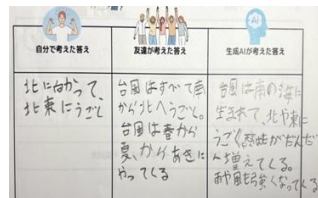 自分で考えた答え
友達が考えた答え
生成AIが考えた答え
北にむかって、
北東にうごく
台風はすべて南
から北へうごく。
台風は春から
夏、からあきに
やってくる
台風は南の海に
生まれて、北や東に
うごく
増えてくる。
雨や風も強くなってくる